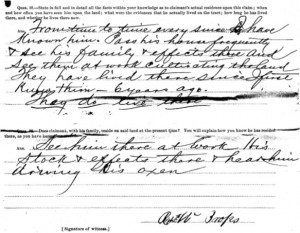 Ques. 19.—State in full and in detail all the facts within your knowledge as to claimant's actual residence upon this claim; when
and how often you have seen him upon the land; what were the evidences that he actually lived on the tract; how long he has lived
there, and whether he lives there now.
From time to time, ever since I have
Known him. Pass his house frequently
& see his family & effects there and
See them at work cultivating the land
They have lived there since I first
Knew them - 6 years ago.
They do live there
Does claimant, with his family, reside on said land at the present time? You will explain how you know he has resided
there, as you have
Ans. See him there at work His
Stock & effects there & hear him
driving his oxen
[Signature of witness.]